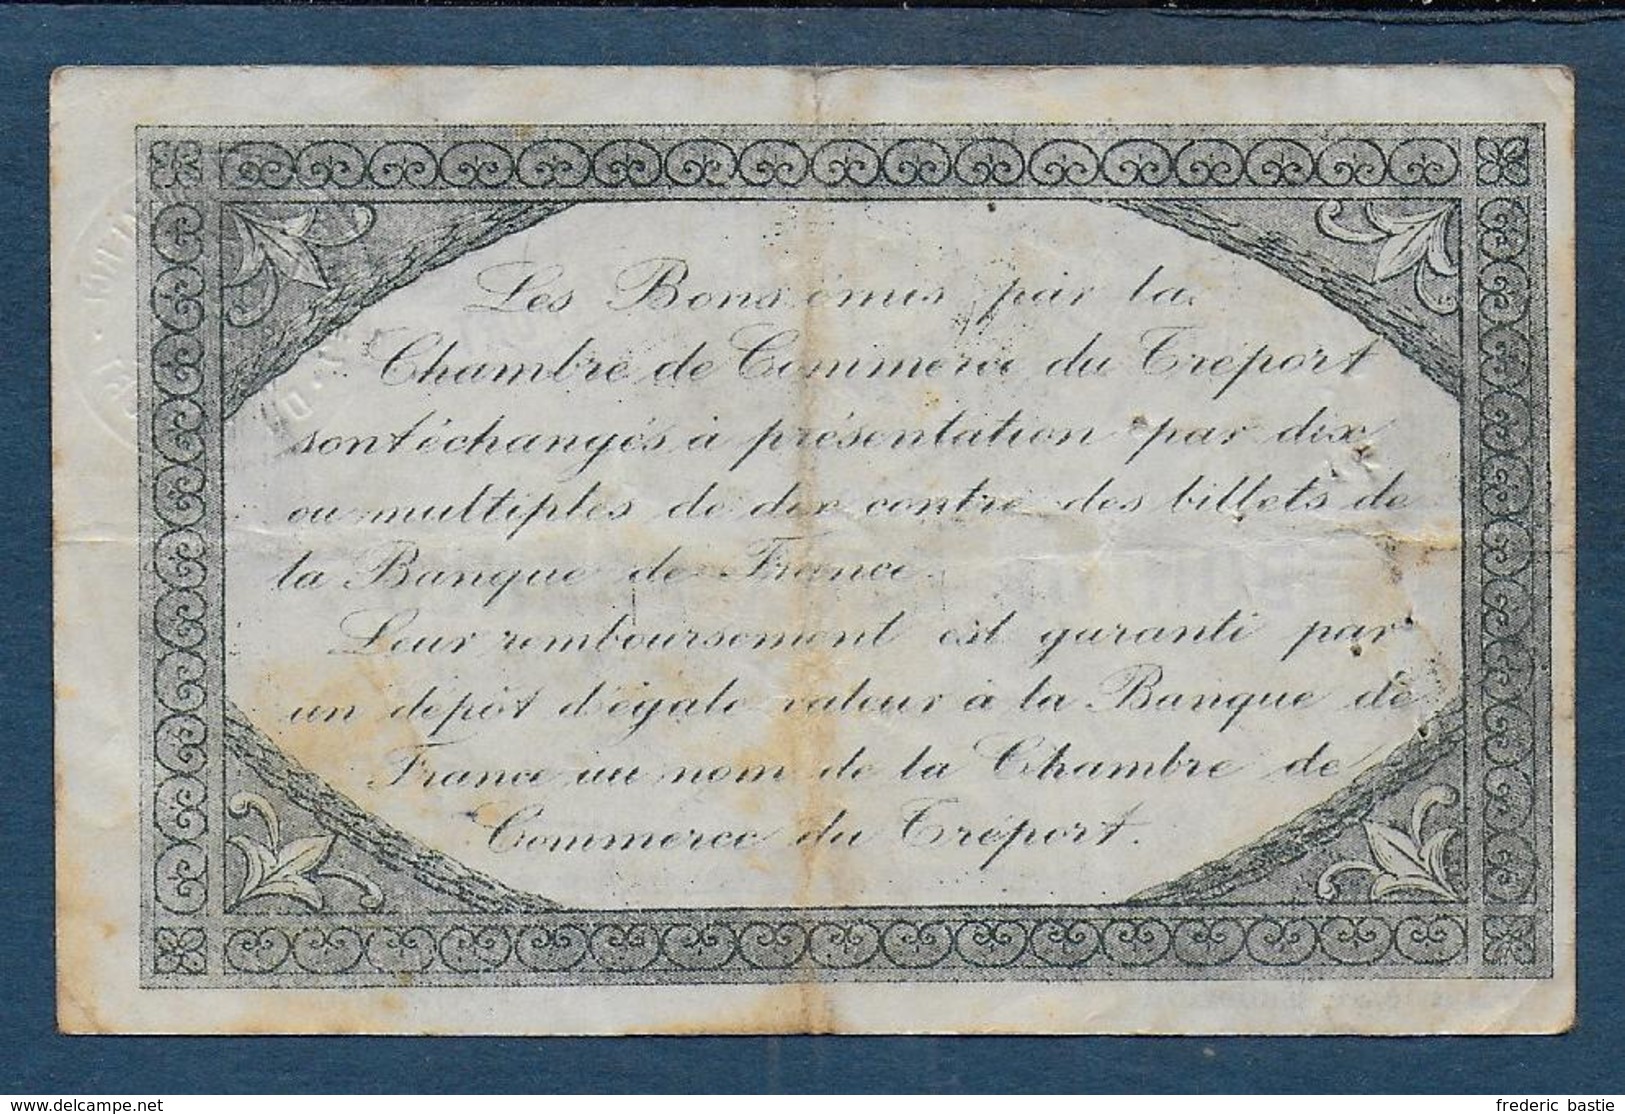 Les Bons émis par la
Chambre de Commerce du Tréport
sont échangés à présentation par dix
ou multiples de dix contre des billets de
la Banque de France.
Leur remboursement est garanti par
un dépôt d'égale valeur à la Banque de
France au nom de la Chambre de
Commerce du Tréport.
www.delcampe.net
frederic bastie